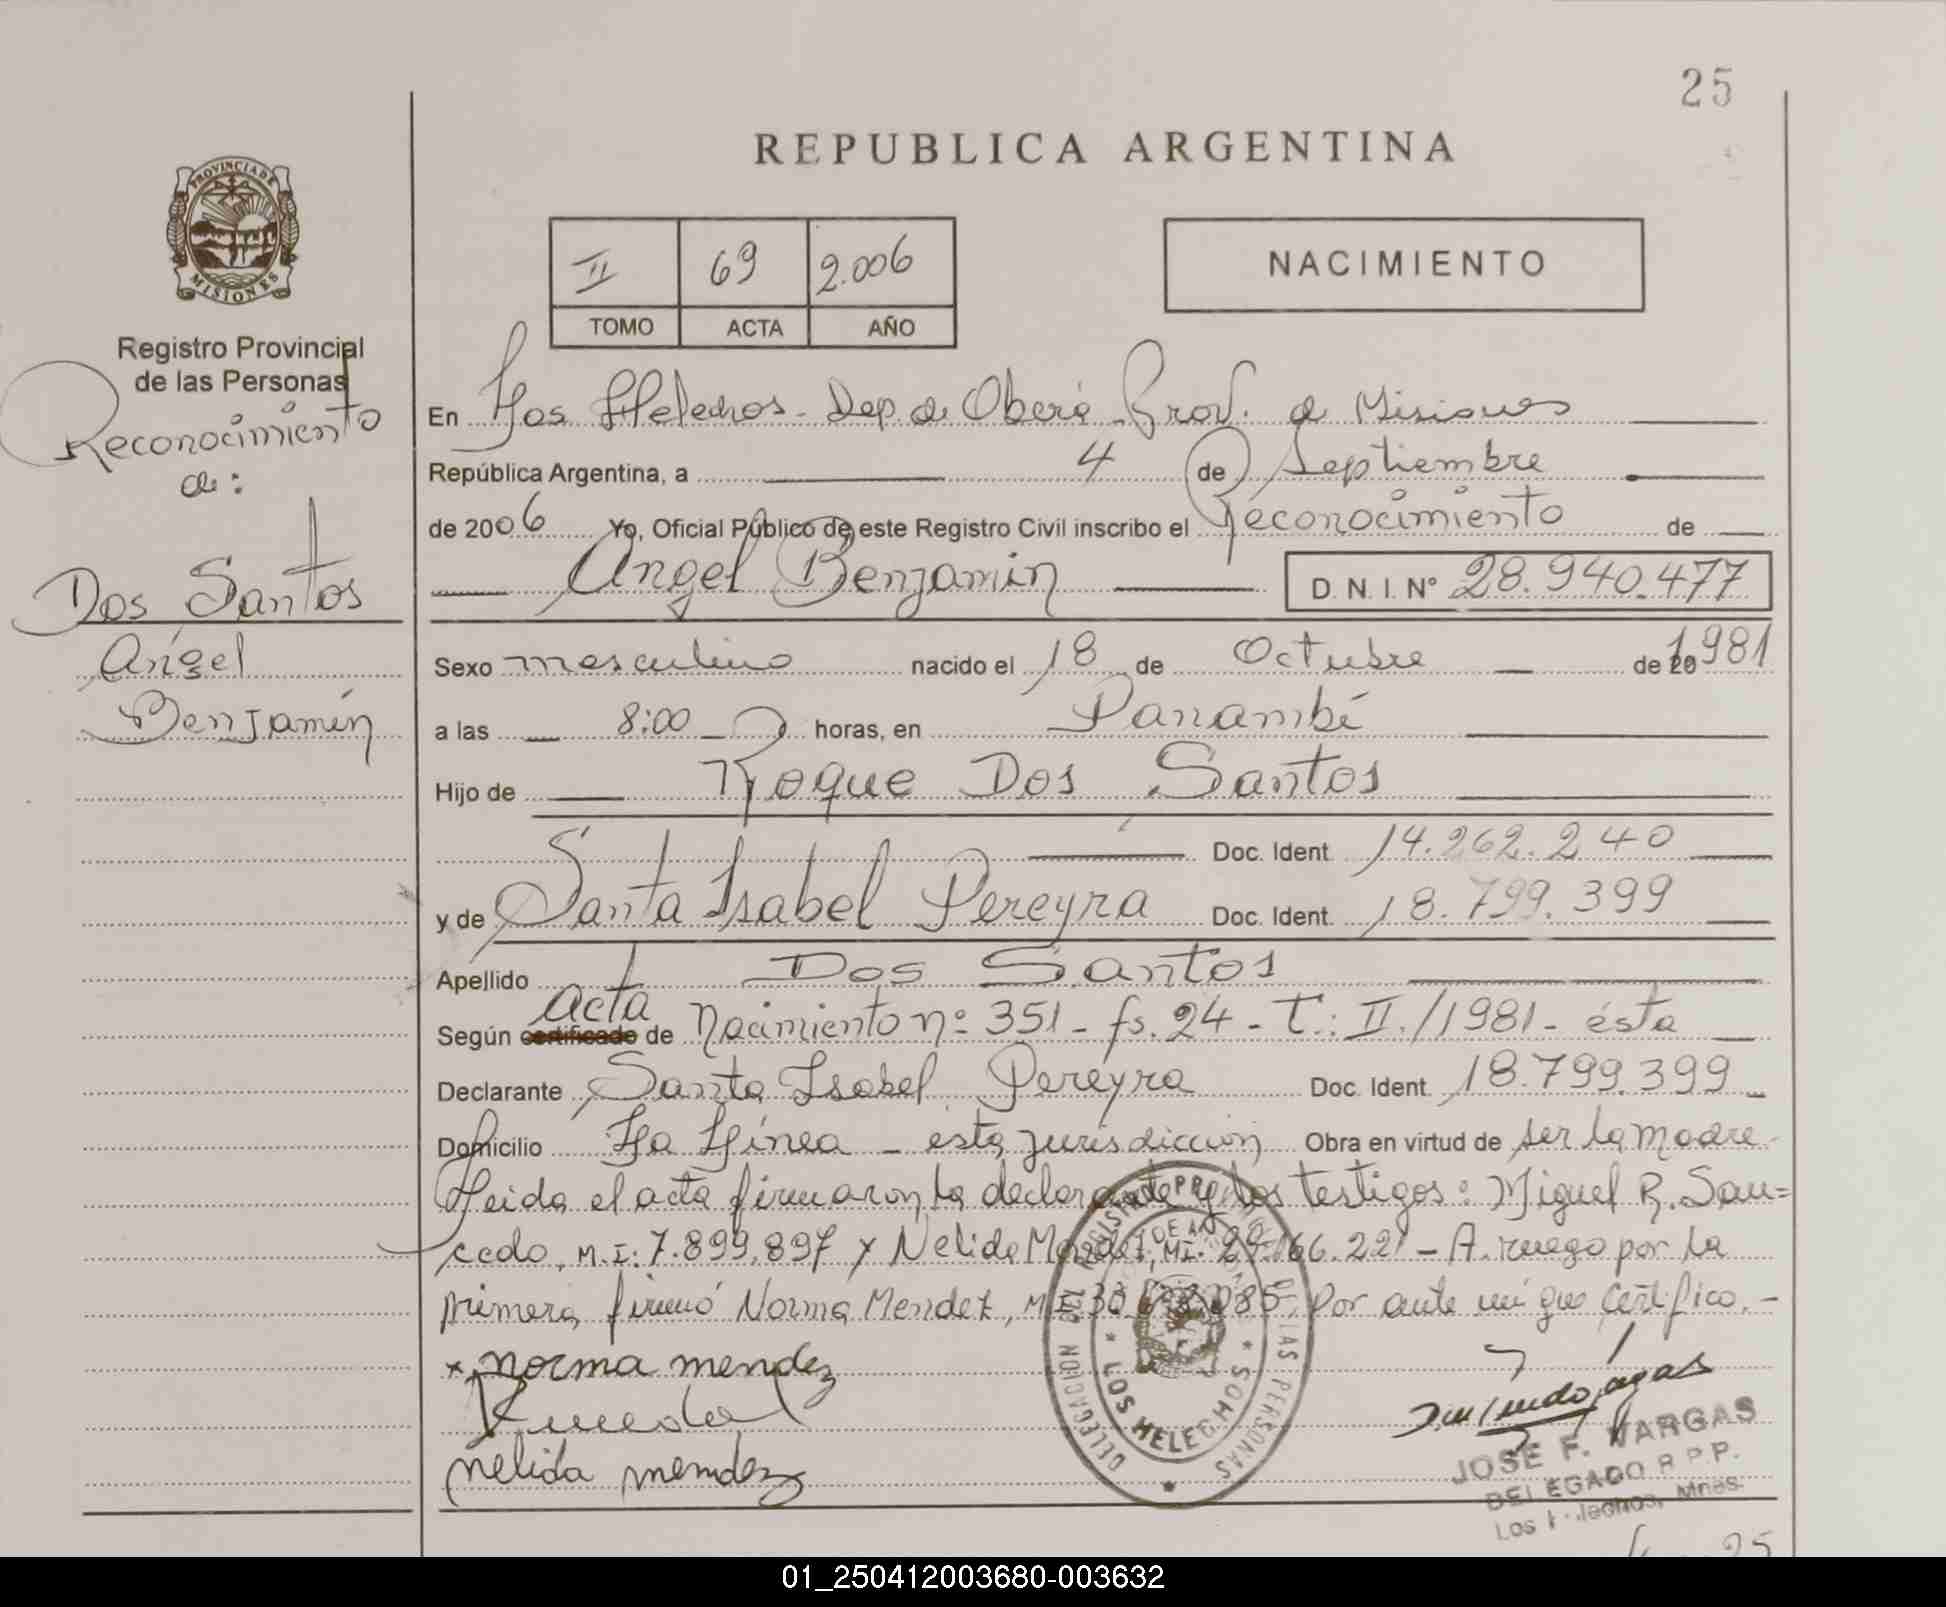 25
REPUBLICA ARGENTINA
PROVINCIA DE
MISIONES
II 69 2.006
TOMO ACTA AÑO
NACIMIENTO
Registro Provincial
de las Personas
Reconocimiento
de:
Dos Santos
Angel
Benjamín
En Los Helechos - Dep. de Oberá - Prov. de Misiones
República Argentina, a 4 de Septiembre
de 2006 Yo, Oficial Público de este Registro Civil inscribo el Reconocimiento de
Angel Benjamín D. N. I. Nº 28.940.477
Sexo masculino nacido el 18 de Octubre de 1981
a las 8:00 horas, en Panambí
Hijo de Roque Dos Santos
Doc. Ident. 14.262.240
y de Santa Isabel Pereyra Doc. Ident. 18.799.399
Apellido Dos Santos
Acta
Según certificado de Nacimiento nº 351 - fs. 24 - T: II. / 1981 - ésta
Declarante Santa Isabel Pereyra Doc. Ident. 18.799.399
Domicilio La Línea - esta jurisdicción Obra en virtud de ser la madre -
Leida el acta firmaron la declarante y los testigos: Miguel R. Sau=
cedo, M.I: 7.899.897 y Nelida Mendez, MI. 66.221 - A ruego por la
primera firmó Norma Mendez, M.I. 30 085 Por ante mí que Certifico. -
x norma mendez
nelida mendez
DELEGACION DEL REGISTRO PROV DE LAS PERSONAS
LOS HELECHOS
JOSE F. VARGAS
DELEGADO R.P.P.
Los Helechos, Mnes.
25
01_250412003680-003632